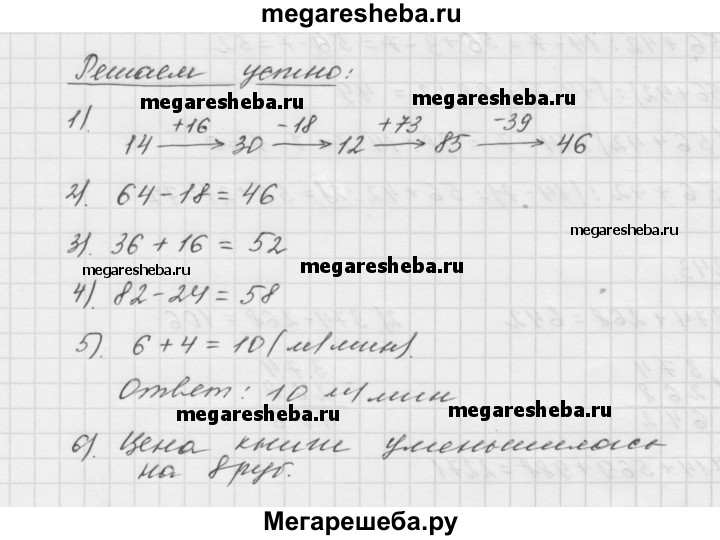 megaresheba.ru
Решаем устно:
megaresheba.ru megaresheba.ru
1). 14 +16 → 30 -18 → 12 +73 → 85 -39 → 46
2). 64 - 18 = 46
megaresheba.ru
3). 36 + 16 = 52
megaresheba.ru megaresheba.ru
4). 82 - 24 = 58
5). 6 + 4 = 10 (м/мин).
Ответ: 10 м/мин
megaresheba.ru megaresheba.ru
6). Цена книги уменьшилась
на 8 руб.
Мегарешеба.ру